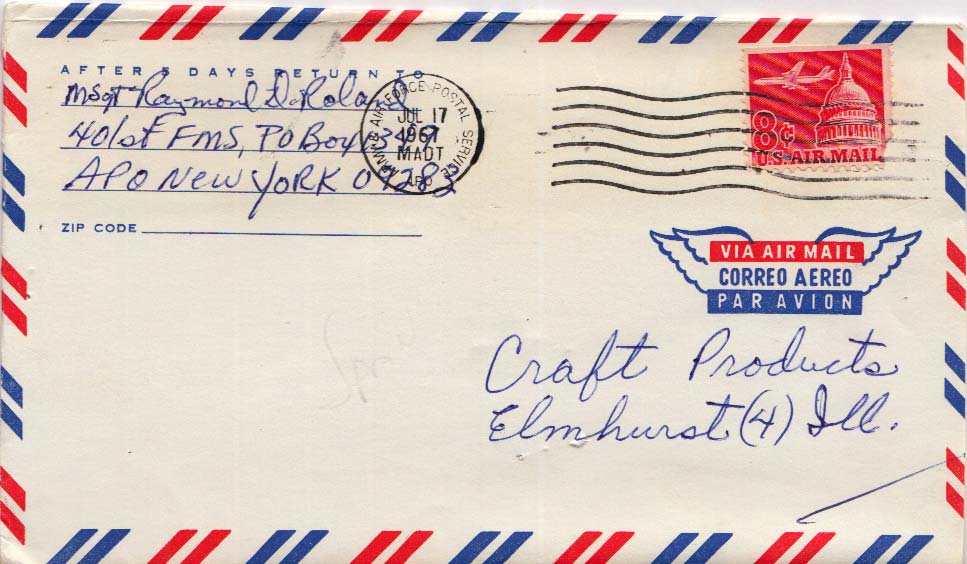 AFTER 5 DAYS RETURN TO
MSgt Raymond D. Roland
401st FMS, PO Box
APO New York 09282
ZIP CODE
ARMY & AIR FORCE POSTAL SERVICE
JUL 17
1967
MADT
APO
8¢
U.S. AIR MAIL
VIA AIR MAIL
CORREO AEREO
PAR AVION
Craft Products
Elmhurst (4) Ill.